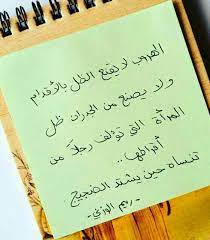 الهروب لا يقنع الظل بالأقدام
ولا يصنع من الجدران ظل
المرأة التي تؤلف رجلاً من
أقراطها ..
تنساه حين يشتد الضجيج .
- ريم الوزني -